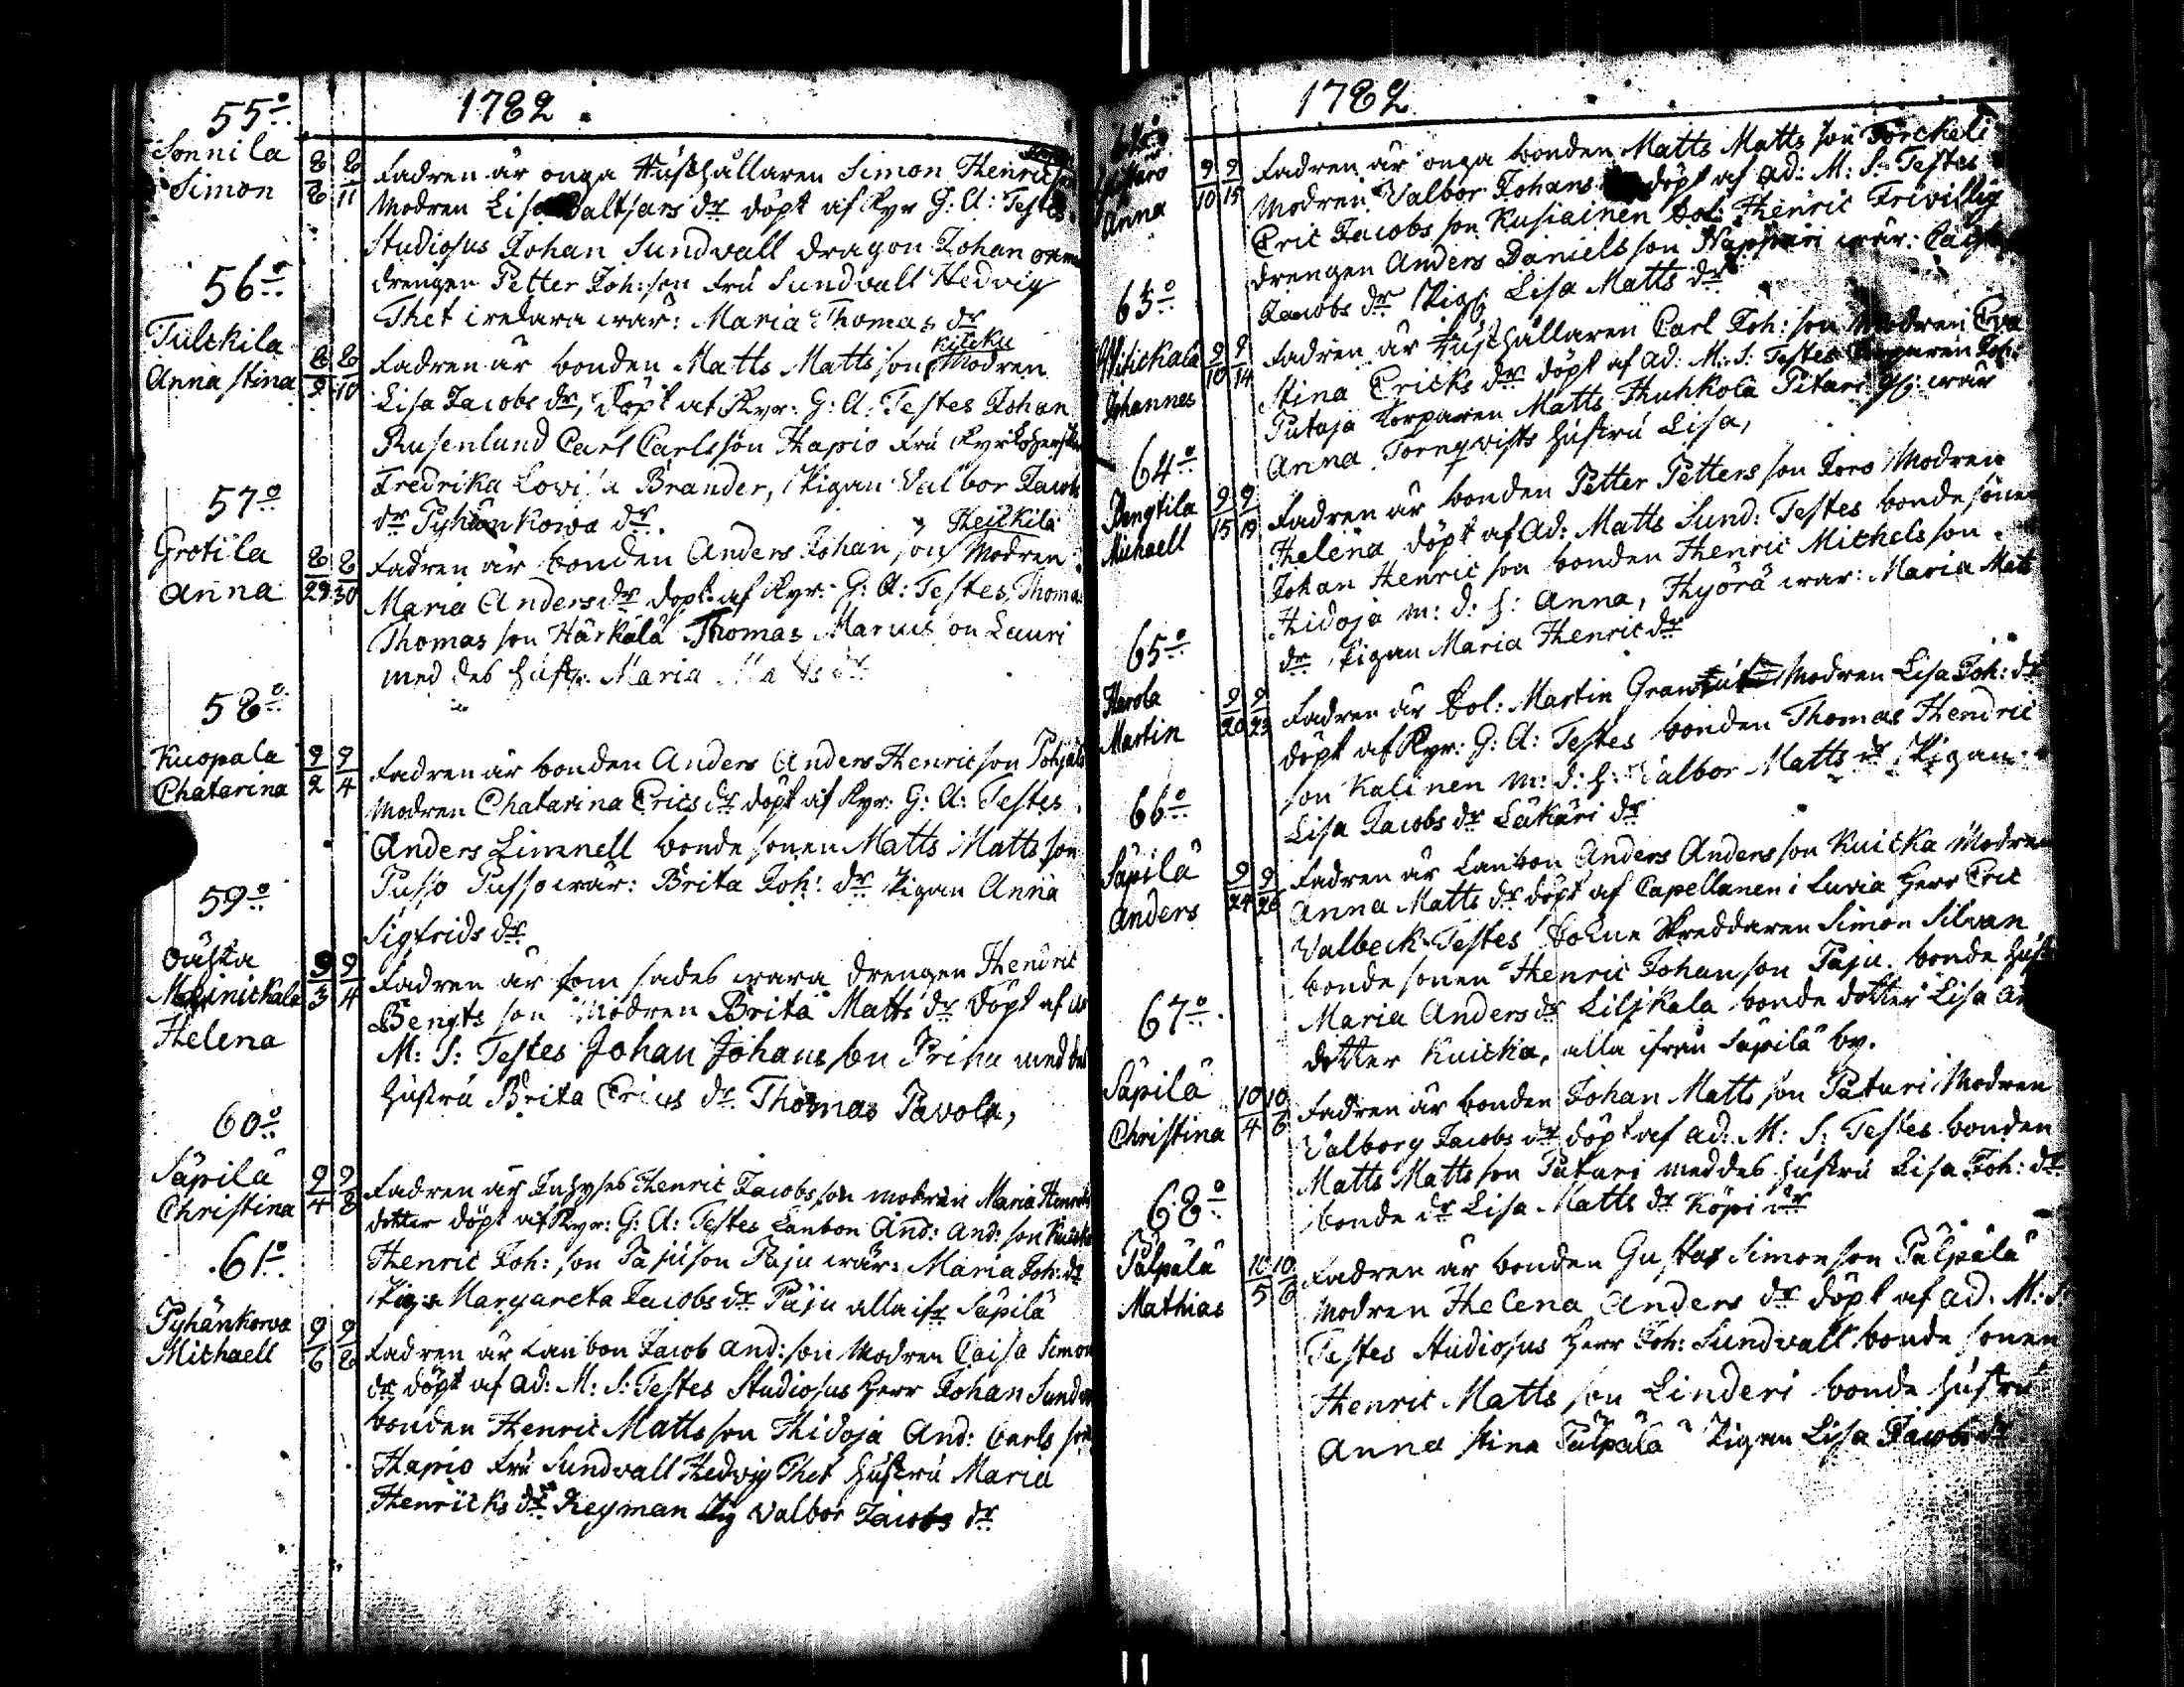 1782
55o
Sonnila
Simon
8/8 8/11
Fadren är unga Hushållaren Simon Henrics
Modren Lisa Baltsars dr döpt af Kyr G: A: Testes
Studiosus Johan Sundvall dragon Johan
drengen Petter Joh: son Fru Sundvall Hedvig
Thet wär: Maria Thomas dr
56o
Tulckila
Anna Stina
8/9 8/10
Fadren är bonden Matts Matts son Kiicku Modren
Lisa Jacobs dr, döpt af Kyr: G: A: Testes Johan
Rusenlund Carl Carlsson Hapio Fru
Fredrika Lovisa Brander, Pigan Valbor Jacobs
dr Pyhänkowa dr.
57o
Grotila
Anna
8/29 8/30
Fadren är bonden Anders Johan son Heickilä Modren
Maria Anders dr döpt af Kyr: G: A: Testes Thomas
Thomas son Härkälä Thomas Marcus on Lauri
med des hustr. Maria Matts dr
58o
Kuopala
Chatarina
9/2 9/4
Fadren är bonden Anders Anders Henricson
Modren Chatarina Erics dr döpt af Kyr: G: A: Testes
Anders Limnell bonde sonen Matts Matts son
Pusso Pusso wär: Brita Joh: dr Pigan Anna
Sigfrids dr
59o
Oästa
Meinickala
Helena
9/3 9/4
Fadren är som sades wara drengen Hendric
Bengts son Modren Brita Matts dr döpt af
M: S: Testes Johan Johans son Prihu med des
hustru Brita Erics dr Thomas Pavola,
60o
Säpilä
Christina
9/4 9/8
Fadren är Inhyses Henric Jacobs son modren Maria Henrics
dotter döpt af Kyr: G: A: Testes Lanbon And: And: son Kuicka
Henric Joh: son Pajuson Paju wär: Maria Joh: dr
Pig: Margareta Jacobs dr Paju alla ifr Säpilä
61o
Pyhänkorva
Michaell
9/6 9/8
Fadren är Lanbon Jacob And: son Modren Caisa Simons
dr döpt af ad: M: S: Testes Studiosus Herr Johan Sundv
bonden Henric Matts son Hidoja And: Carls son
Hapio Fru Sundvall Hedvig Thet hustru Maria
Henricks dr Reyman Pig Valbor Jacobs dr
1782
Anna
9/10 9/15
Fadren är unga bonden Matts Matts son Torckeli
Modren Valbor Johans döpt af ad: M: S: Testes
Eric Jacobs son Kusiainen Sol: Henric Frivillig
drengen Anders Daniels son Näppäri wär: Caisa
Jacobs dr Pig: Lisa Matts dr
63o
Witickala
Johannes
9/10 9/14
Fadren är Hushållaren Carl Joh: son Modren Eva
Stina Ericks dr döpt af ad: M: S: Testes Torparen Joh:
Putaja Torparen Matts Huhkola Pitar: gs: wär
Anna Tornqvists hustru Lisa,
64o
Bengtila
Michaell
9/15 9/19
Fadren är bonden Petter Petters son Joro Modren
Helena döpt af ad: Matts Sund: Testes bonde sonen
Johan Henric son bonden Henric Michels son
Hidoja m: d: h: Anna, Hyörä wär: Maria Matts
dr Pigan Maria Henric dr
65o
Harola
Martin
9/20 9/23
Fadren är Sol: Martin Modren Lisa Joh: dr
döpt af Kyr: G: A: Testes bonden Thomas Hendric
son Kalinen m: d: h: Valbor Matts dr Pigan
Lisa Jacobs dr Läkäri dr
66o
Säpilä
Anders
9/24 9/26
Fadren är Lanbon Anders Anders son Kuicka Modren
Anna Matts dr döpt af Capellanen i Luvia Herr Eric
Valbeck Testes Sokne Skreddaren Simon Silvan
bonde sonen Henric Johanson Paju bonde hust
Maria Anders dr Liljkala bonde dotter Lisa An
dotter Kuicka, alla ifrån Säpilä by.
67o
Säpilä
Christina
10/4 10/6
Fadren är bonden Johan Matts son Paturi Modren
Valborg Jacobs dr döpt af ad: M: S: Testes bonden
Matts Matts son Paturi med des hustru Lisa Joh: dr
bonde dr Lisa Matts dr Köpi dr
68o
Pälpälä
Mathias
10/5 10/6
Fadren är bonden Gustaf Simon son Pälpälä
Modren Helena Anders dr döpt af ad. M: S:
Testes Studiosus Herr Joh: Sundvall bonde sonen
Henric Matts son Linderi bonde hustru
Anna Stina Pälpälä Pigan Lisa Jacobs dr